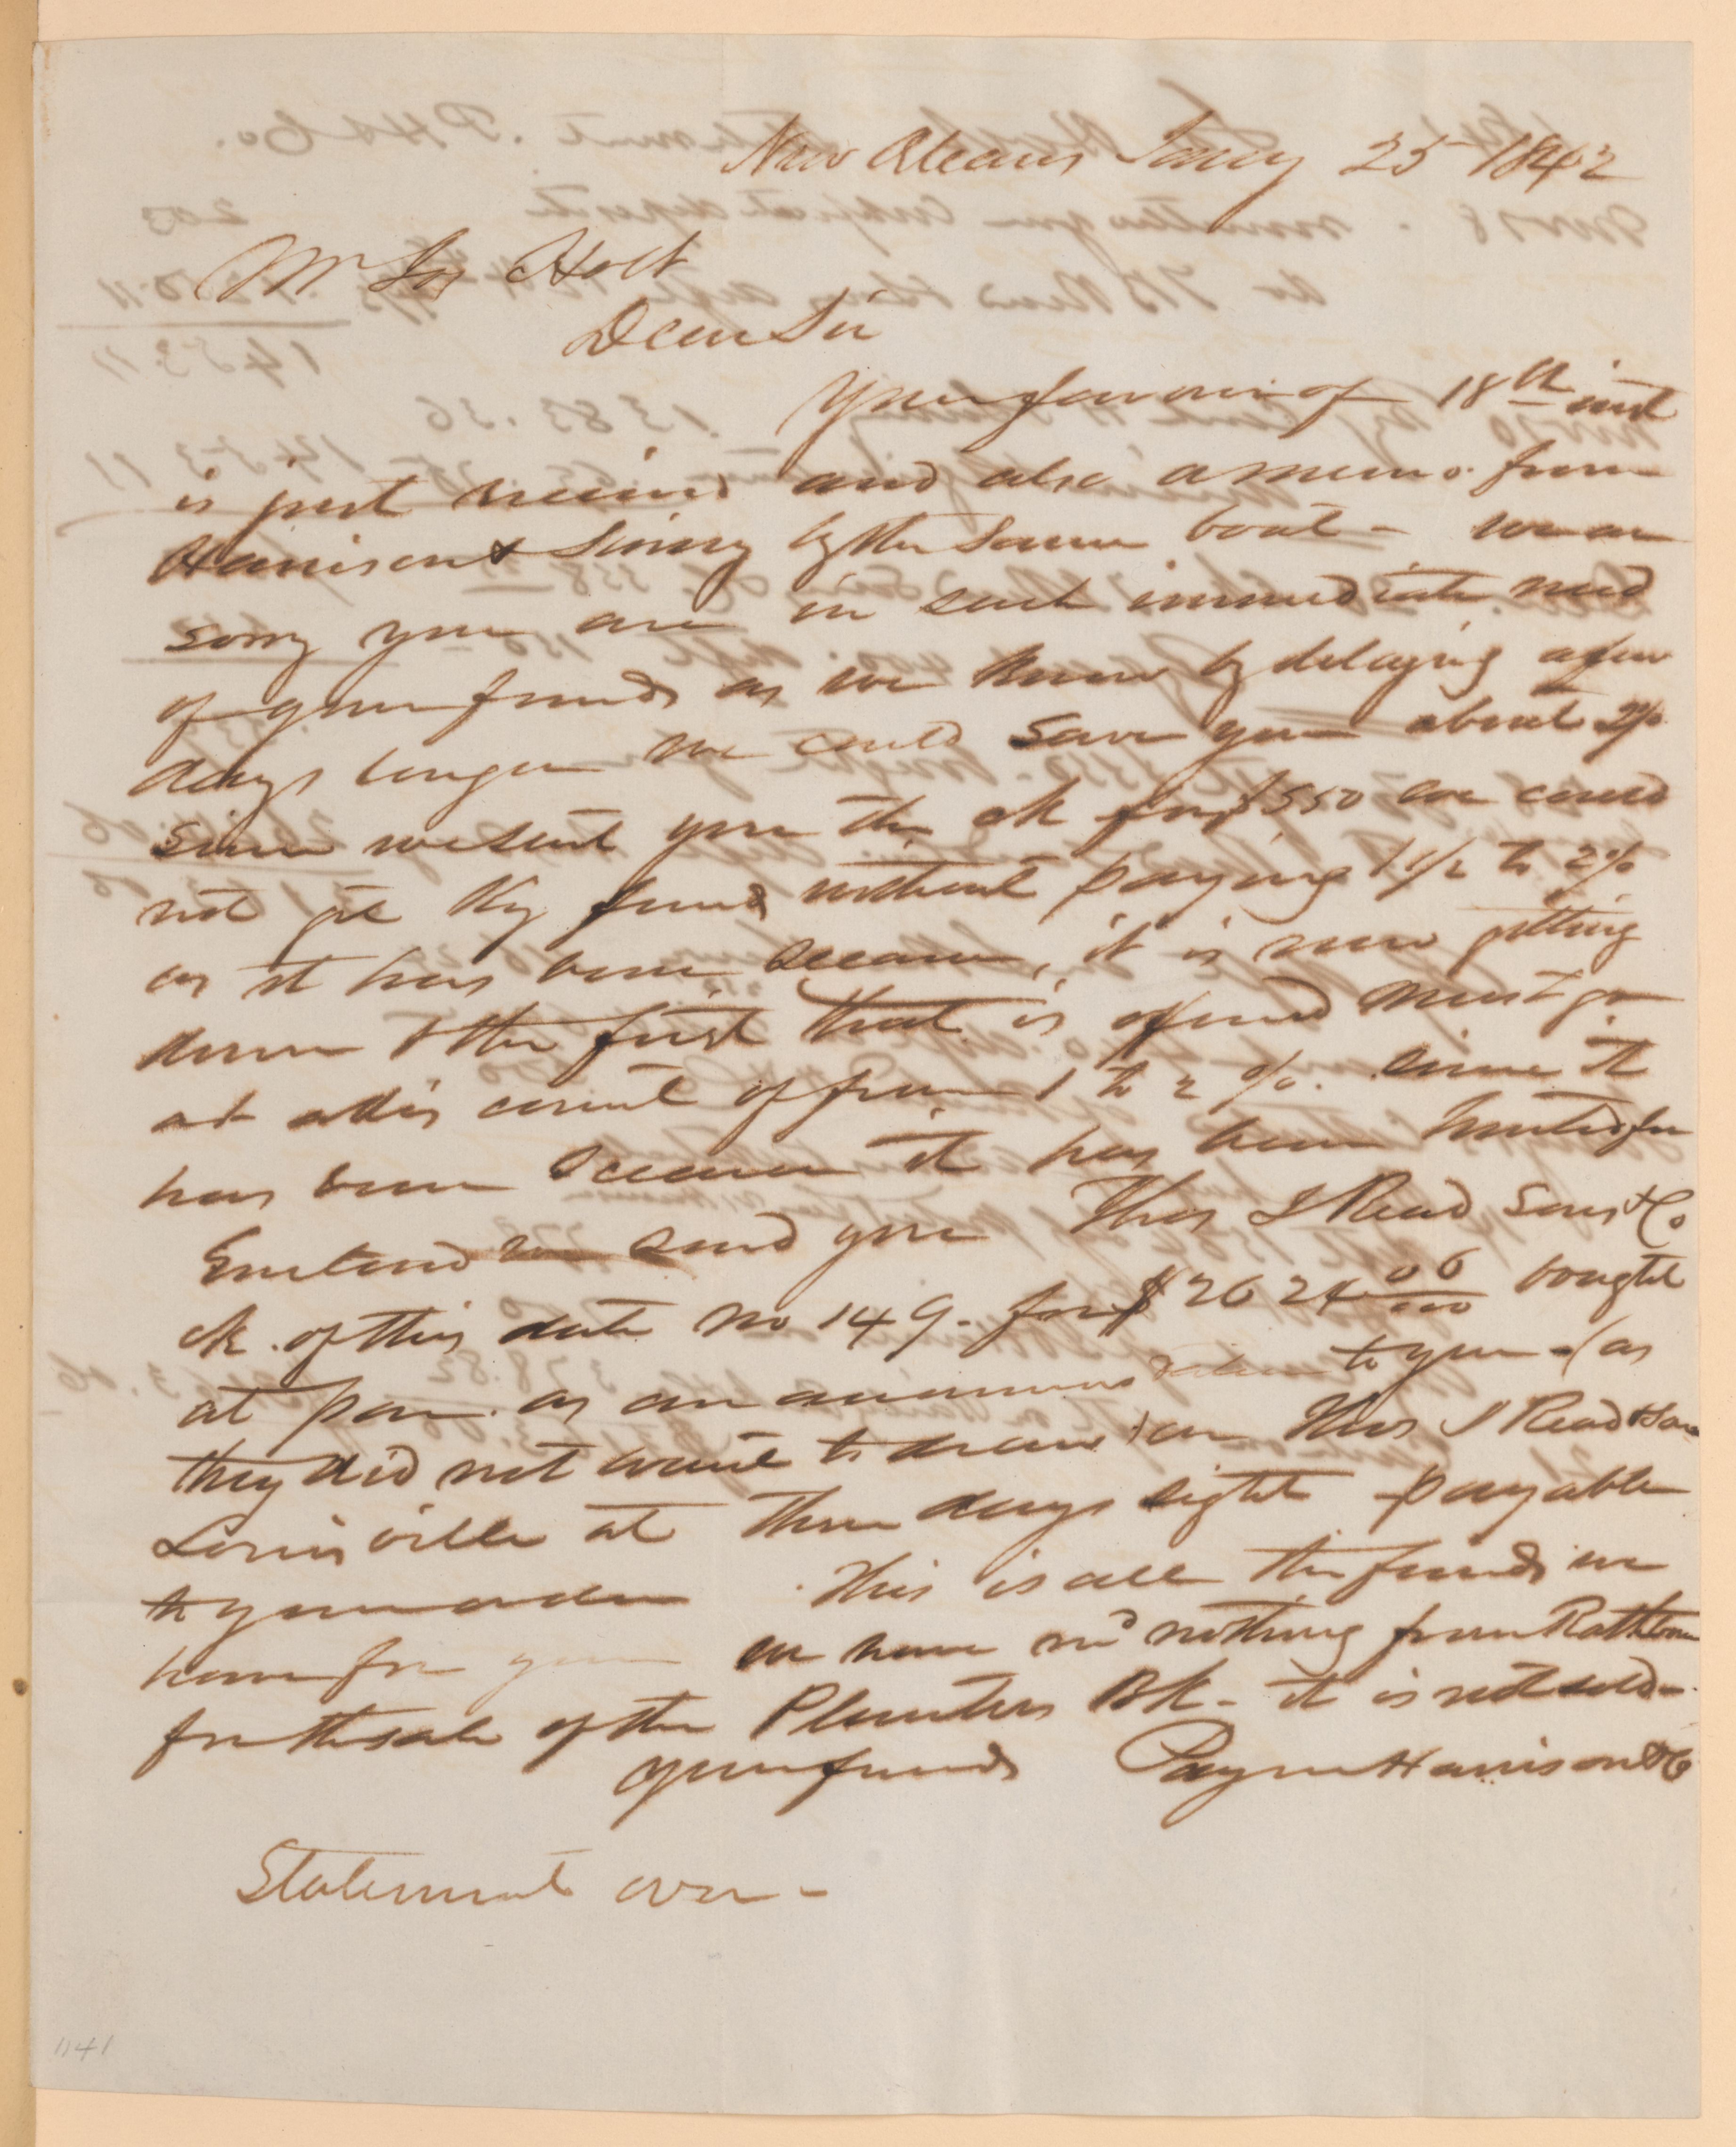 New Orleans Jany 25 1842
Mr Jos Holt
Dear Sir
Your favour of 18th inst
is just received and also a memo. from
Harrison & by the same boat - we are
sorry you are in such immediate need
of your funds as we know by delaying a few
days longer we could save you about 2%
since we sent you the ck for $550 we could
not get Ky funds without paying 1 1/2 to 2%
as it has been scarce, it is now getting
down & the first that is offered must go
at a discount of from 1 to 2 %. since it
has been scarce it has been
send you Thos J Read Sons & Co
ck. of this date no 149. for $2624 06/100 bought
at par. as an to you - (as
they did not want to draw) on Thos J Read & Son
Louisville at three days sight payable
to your order. This is all the funds we
have for you we have recd nothing from Rathbone
for the sale of the Planters Bk - it is not sold -
your friends Payne Harrison & Co
Statement over -
1141